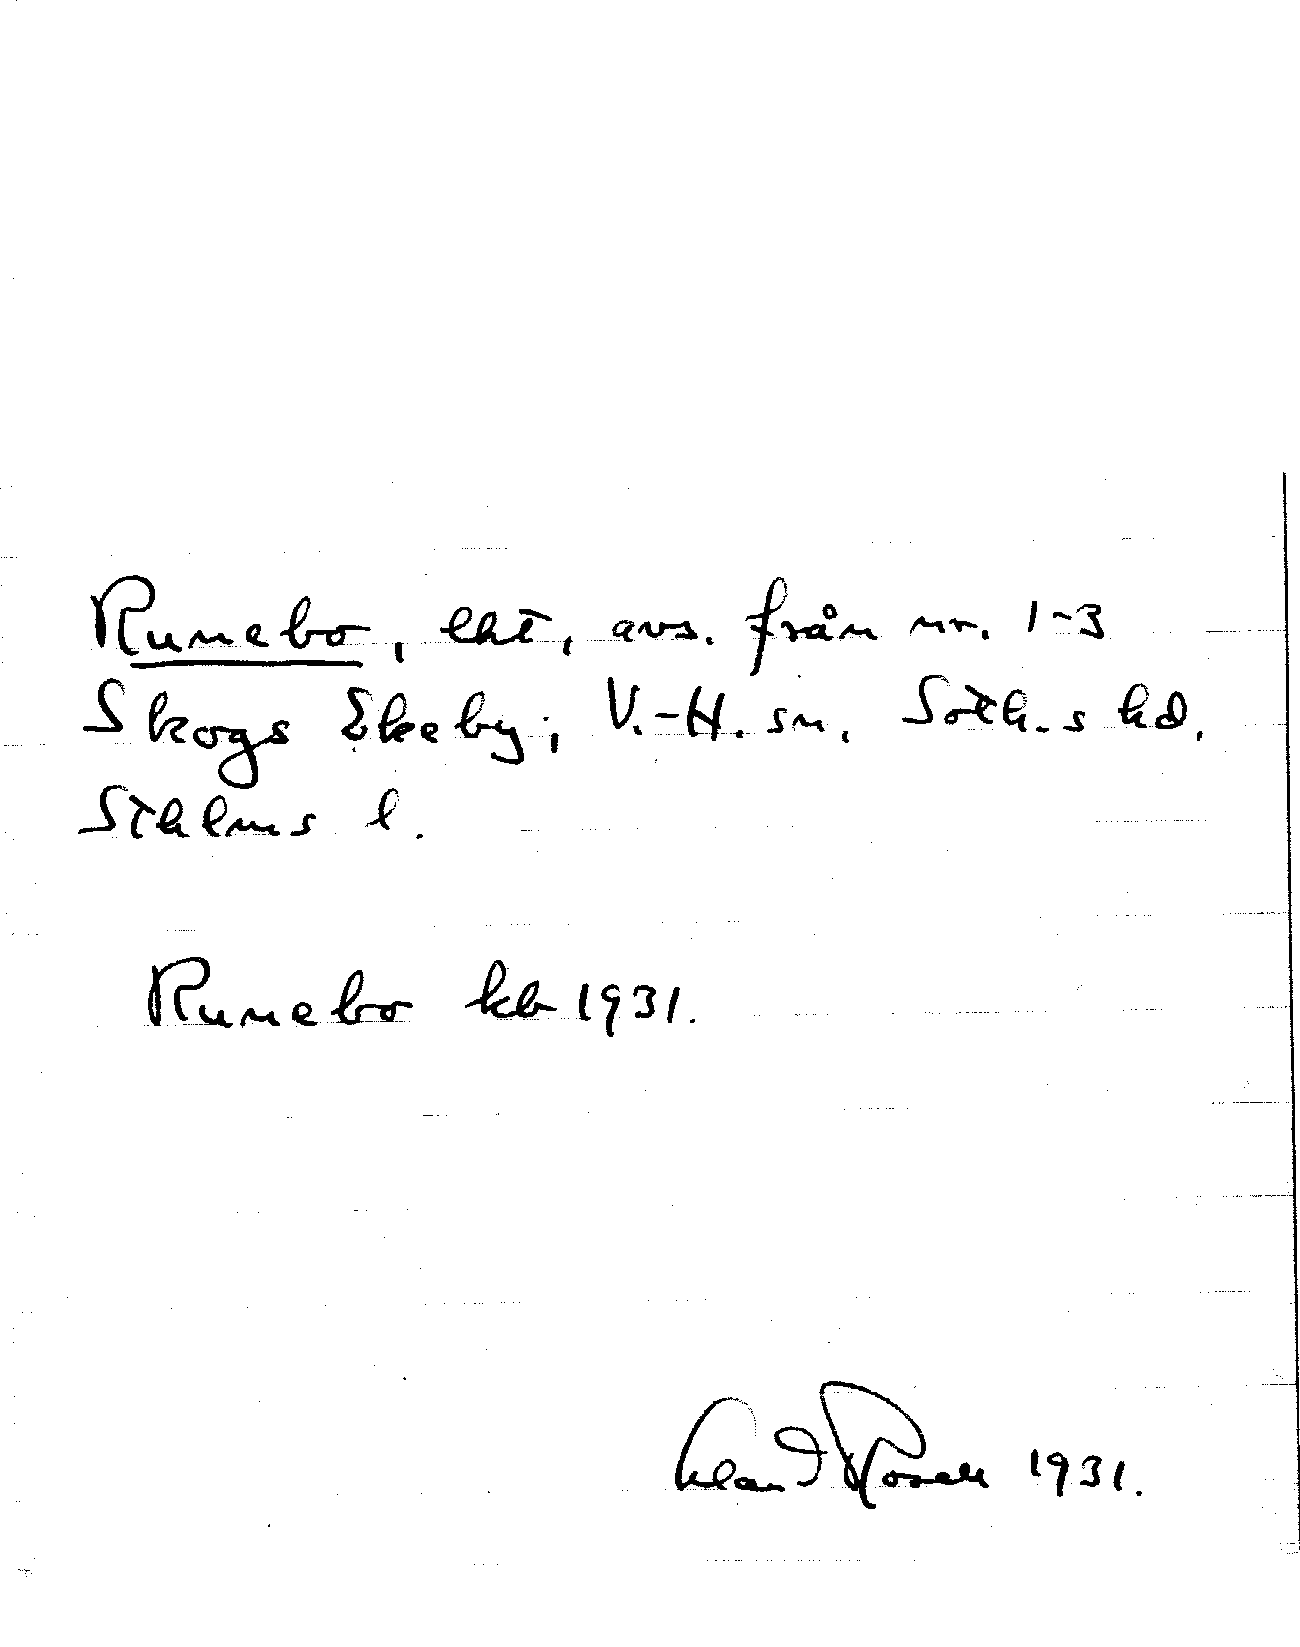 Runebo, lht, avs. från nr. 1-3
Skogs Ekeby, V.-H. sn, Soth.s hd,
Sthlms l.
Runebo kb 1931.
1931.